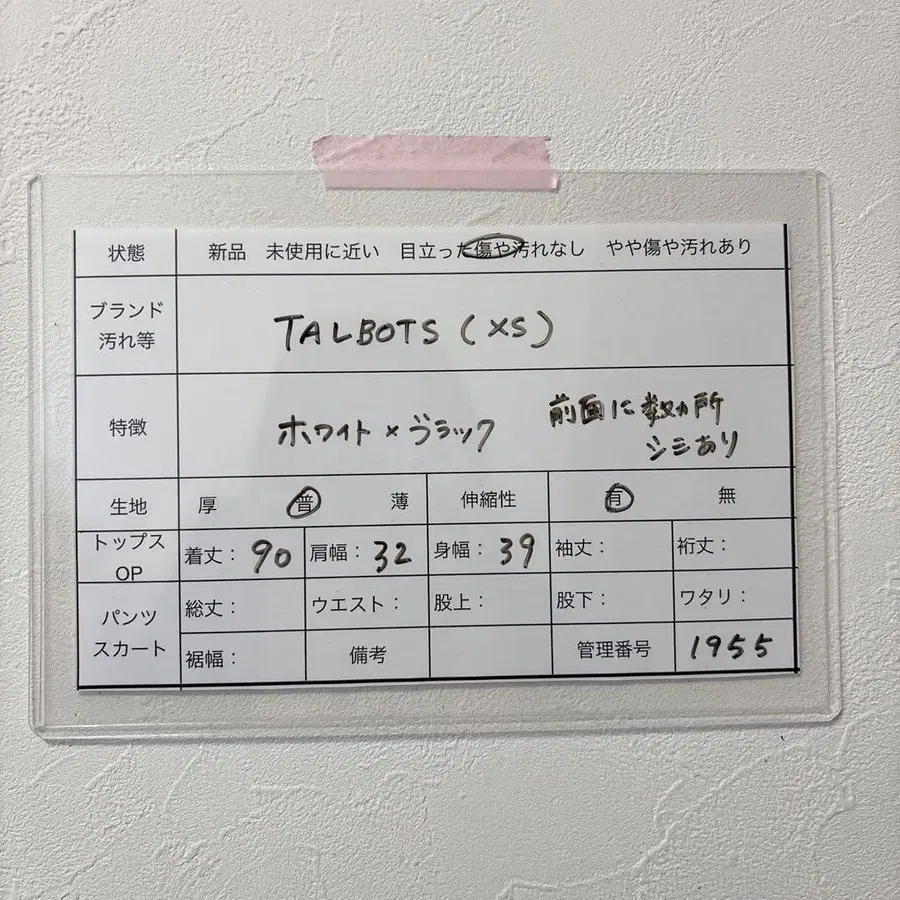 状態 新品 未使用に近い 目立った傷や汚れなし やや傷や汚れあり
ブランド
汚れ等
TALBOTS (XS)
特徴
ホワイト×ブラック
前面に数カ所
シミあり
生地 厚 普 薄 伸縮性 有 無
トップス
OP
着丈: 90 肩幅: 32 身幅: 39 袖丈: 裄丈:
パンツ
スカート
総丈: ウエスト: 股上: 股下: ワタリ:
裾幅: 備考 管理番号 1955